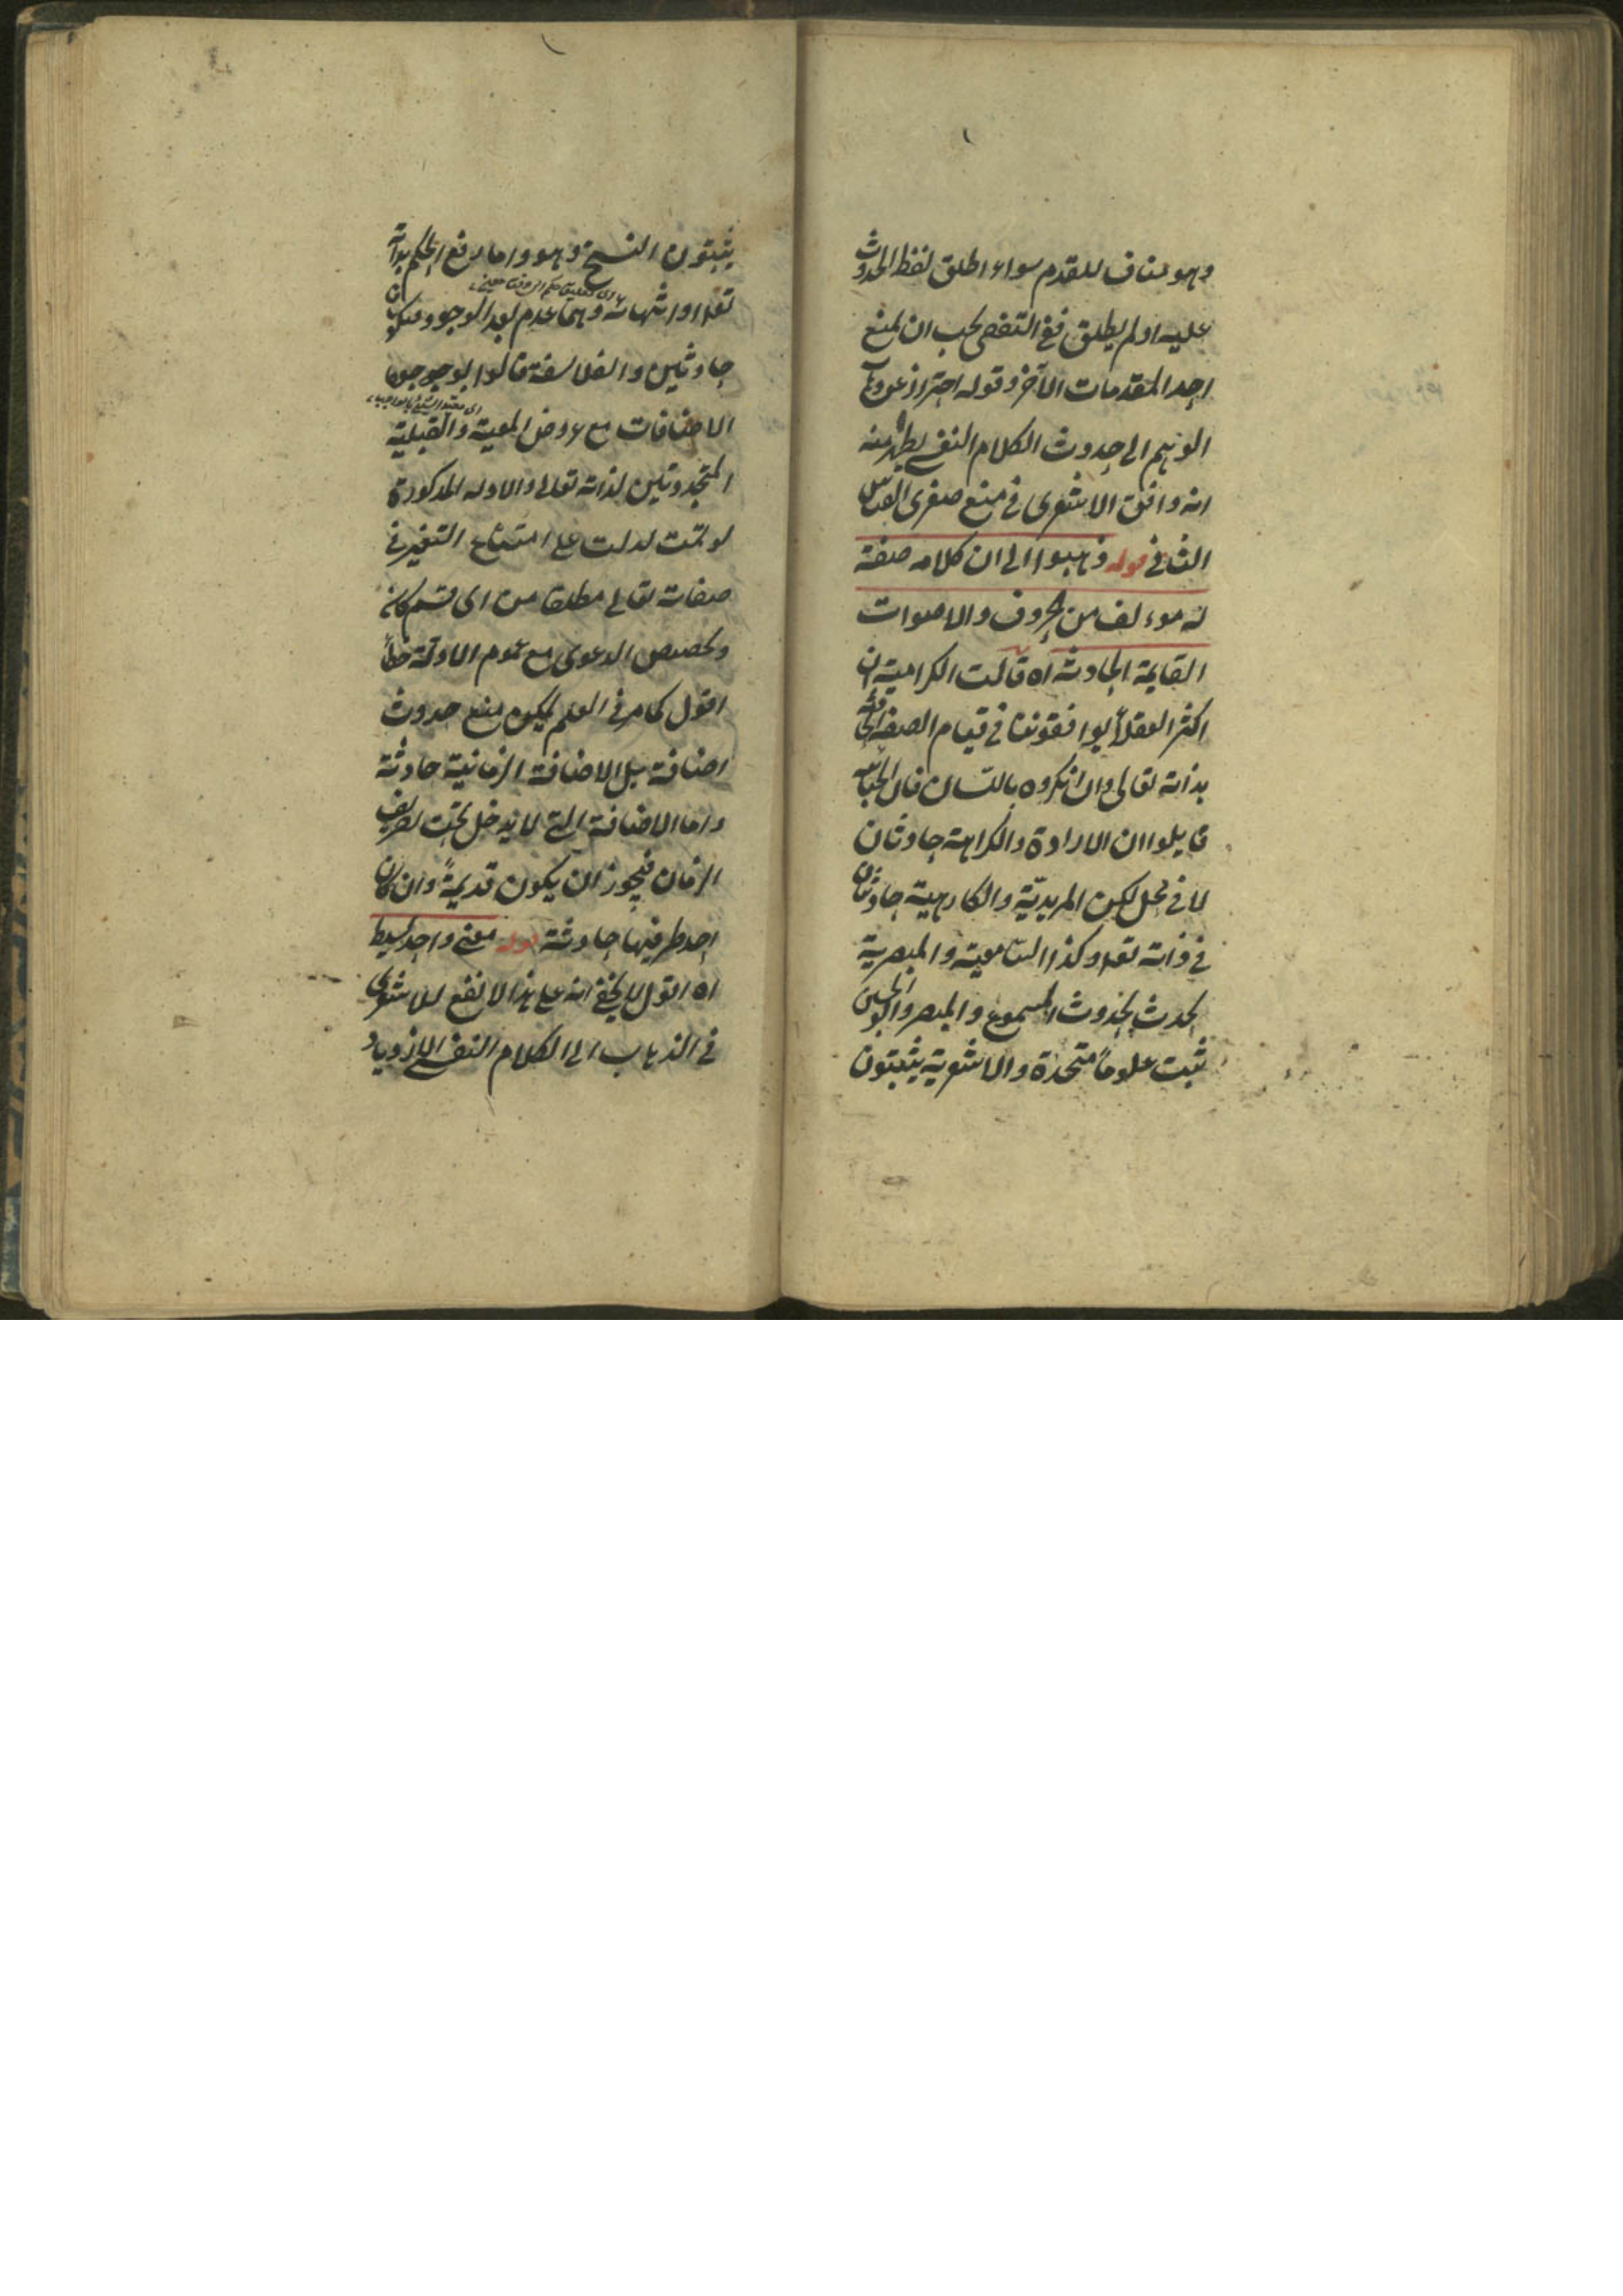 وهو مناف للقدم سواء اطلق لفظ الحدوث
عليه او لم يطلق ففي التفصي يجب ان يمنع
احد المقدمات الآخر وقوله احترازا عن
الوهم الى حدوث الكلام النفسي يظهر منه
انه وافق الاشعرى في منع صغرى القياس
الثاني قوله ذهبوا الى ان كلامه صفة
له موءلف من الحروف والاصوات
القايمة الحادثة اه قالت الكرامية ان
اكثر العقلأ يوافقوننا في قيام الصفة الحادثة
بذاته تعالى وان انكروه باللسان فان الجبائيه
قايلوا ان الارادة والكراهة حادثتان
لا في محل لكن المريديّة والكارهية حادثتان
في ذاته تعا وكذا السامعية والمبصرية
يحدث بحدوث المسموع والمبصر وابو الحسين
يثبت علوماً متجددة والاشعرية يثبتون
يثبتون النسخ وهو اما رفع الحكم بذاته
تعا او انتهائه وهما عدم بعد الوجود فيكونان
حادثين والفلاسفة قالوا بوجود
الاضافات مع عروض المعية والقبلية
المتجددتين لذاته تعالى والادلة المذكورة
لو تمت لدلت على امتناع التغير في
صفاته تعالى مطلقا من اى قسم كان
وتخصيص الدعوى مع عموم الادلة خطأ
اقول كما مر في العلم يمكن منع حدوث
اضافة بل الاضافة الزمانية حادثة
واما الاضافة التي لا يدخل تحت تصريف
الزمان فيجوز ان يكون قديمةً وان كان
احد طرفيها حادثة قوله معنى واحد بسيط
اه اقول لا يخفى انه على هذا لا نفع للاشعرى
في الذهاب الى الكلام النفسي لازدياد